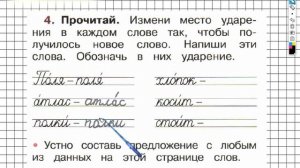 4. Прочитай. Измени место ударе-
ния в каждом слове так, чтобы по-
лучилось новое слово. Напиши эти
слова. Обозначь в них ударение.
По́ля – поля́ хло́пок –
а́тлас – атла́с ко́сит –
полки́ – по́лки сто́ит –
• Устно составь предложение с любым
из данных на этой странице слов.